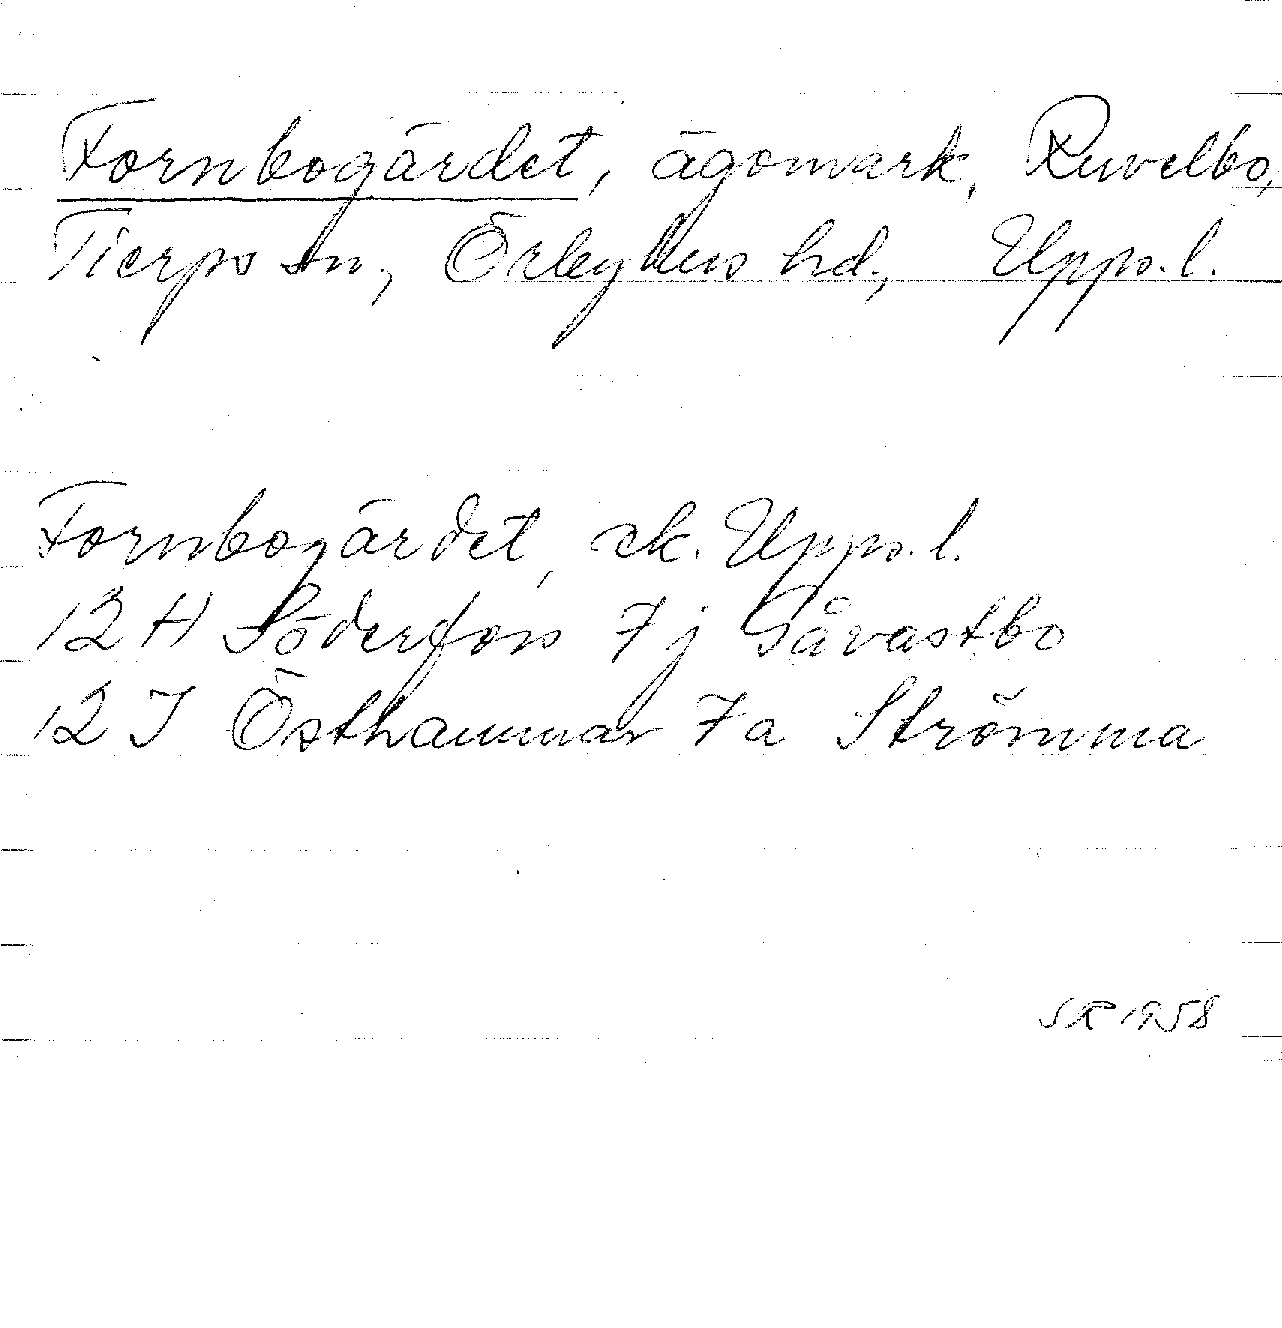 Fornbogärdet, ägomark, Ruvelbo,
Tierps sn, Örbyhus hd, Upps. l.
Fornbogärdet, ek. Upps. l.
12 H Söderfors 7 j Gåvastbo
12 I Östhammar 7 a Strömma
SR 1958